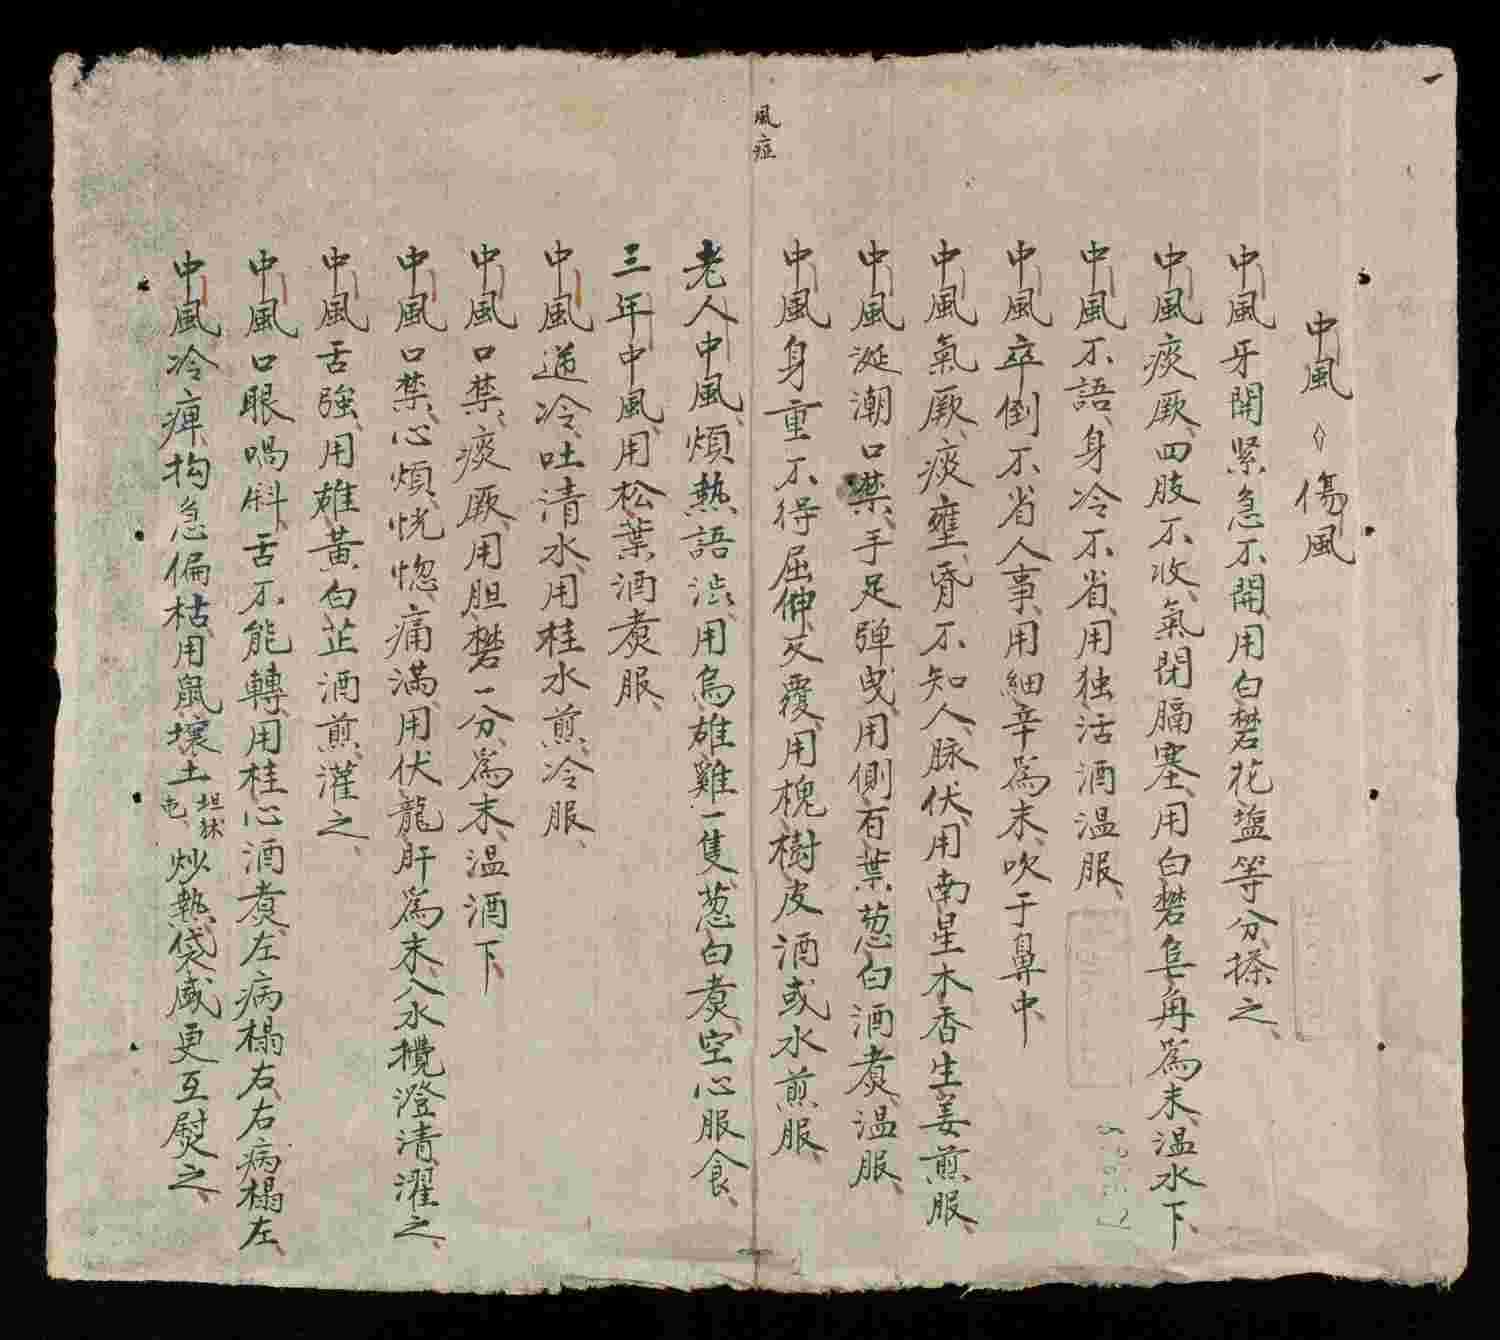 風症
中風 ◊ 傷風
中風牙関緊急不開用白礬花塩等分搽之
中風痰厥四肢不收氣閉膈塞用白礬皂角爲末温水下
中風不語身冷不省用独活酒温服
中風卒倒不省人事用細辛爲末吹于鼻中
中風氣厥痰壅昏不知人脉伏用南星木香生姜煎服
中風涎潮口禁手足嚲曳用側百葉葱白酒煑温服
中風身重不得屈伸反覆用槐樹皮酒或水煎服
老人中風煩熱語澁用烏雄雞一隻葱白煑空心服食
三年中風用松葉酒煑服
中風逆冷吐清水用桂水煎冷服
中風口禁痰厥用胆礬一分爲末温酒下
中風口禁心煩恍惚痛满用伏龍肝爲末入水攪澄清濯之
中風舌強用雄黃白芷酒煎灌之
中風口眼喎斜舌不能轉用桂心酒煑左病榻右右病榻左
中風冷痺拘急偏枯用鼠壤土坦㹥屯炒熱袋盛更互熨之